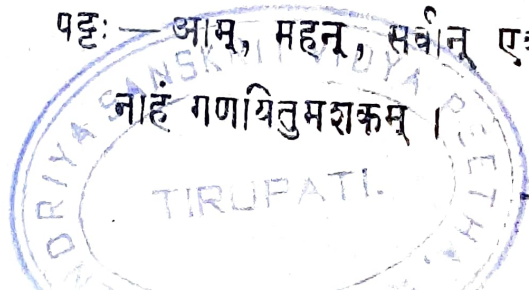 पट्टः — आम्, महन्, सर्वान्
नाहं गणयितुमशकम् ।
SANSKRIT VIDYA PEETHA
TIRUPATI.